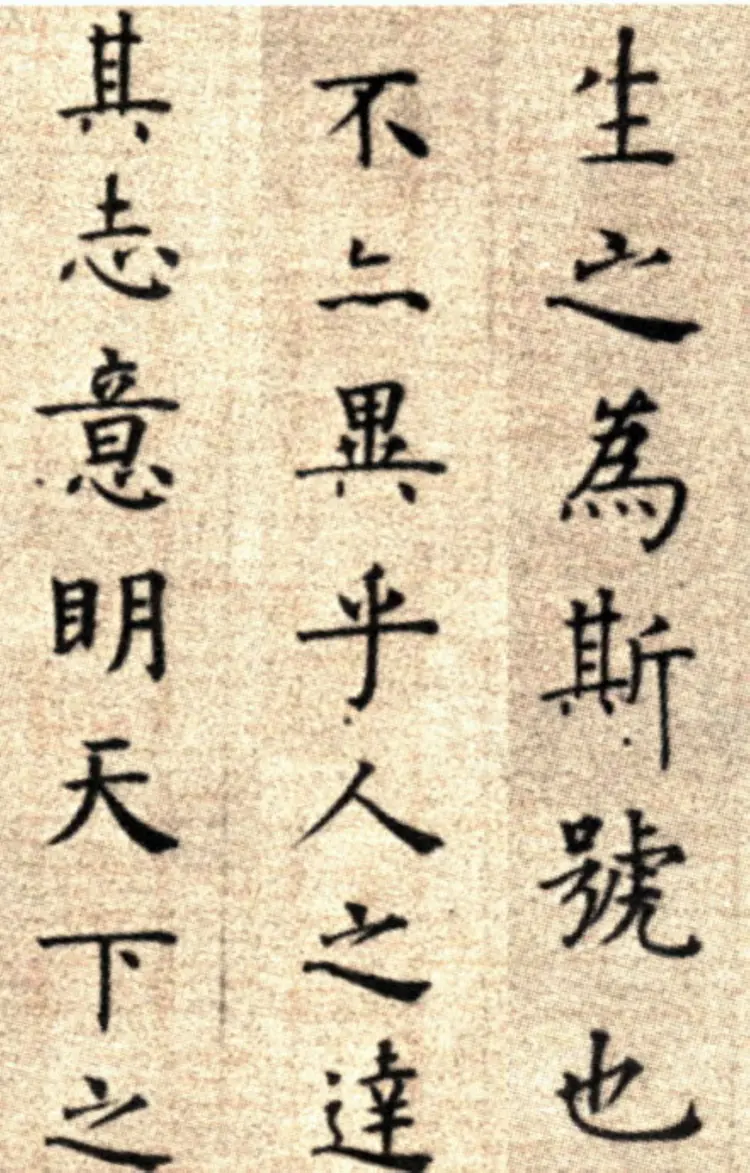 生之為斯號也
不亦異乎人之達
其志意明天下之